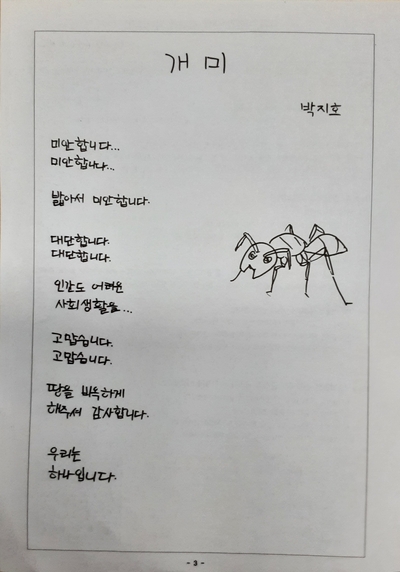 개미
박지호
미안합니다...
미안합니다...
밟아서 미안합니다.
대단합니다.
대단합니다.
인간도 어려운
사회생활을...
고맙습니다.
고맙습니다.
땅을 비옥하게
해주셔 감사합니다.
우리는
하나입니다.
- 3 -